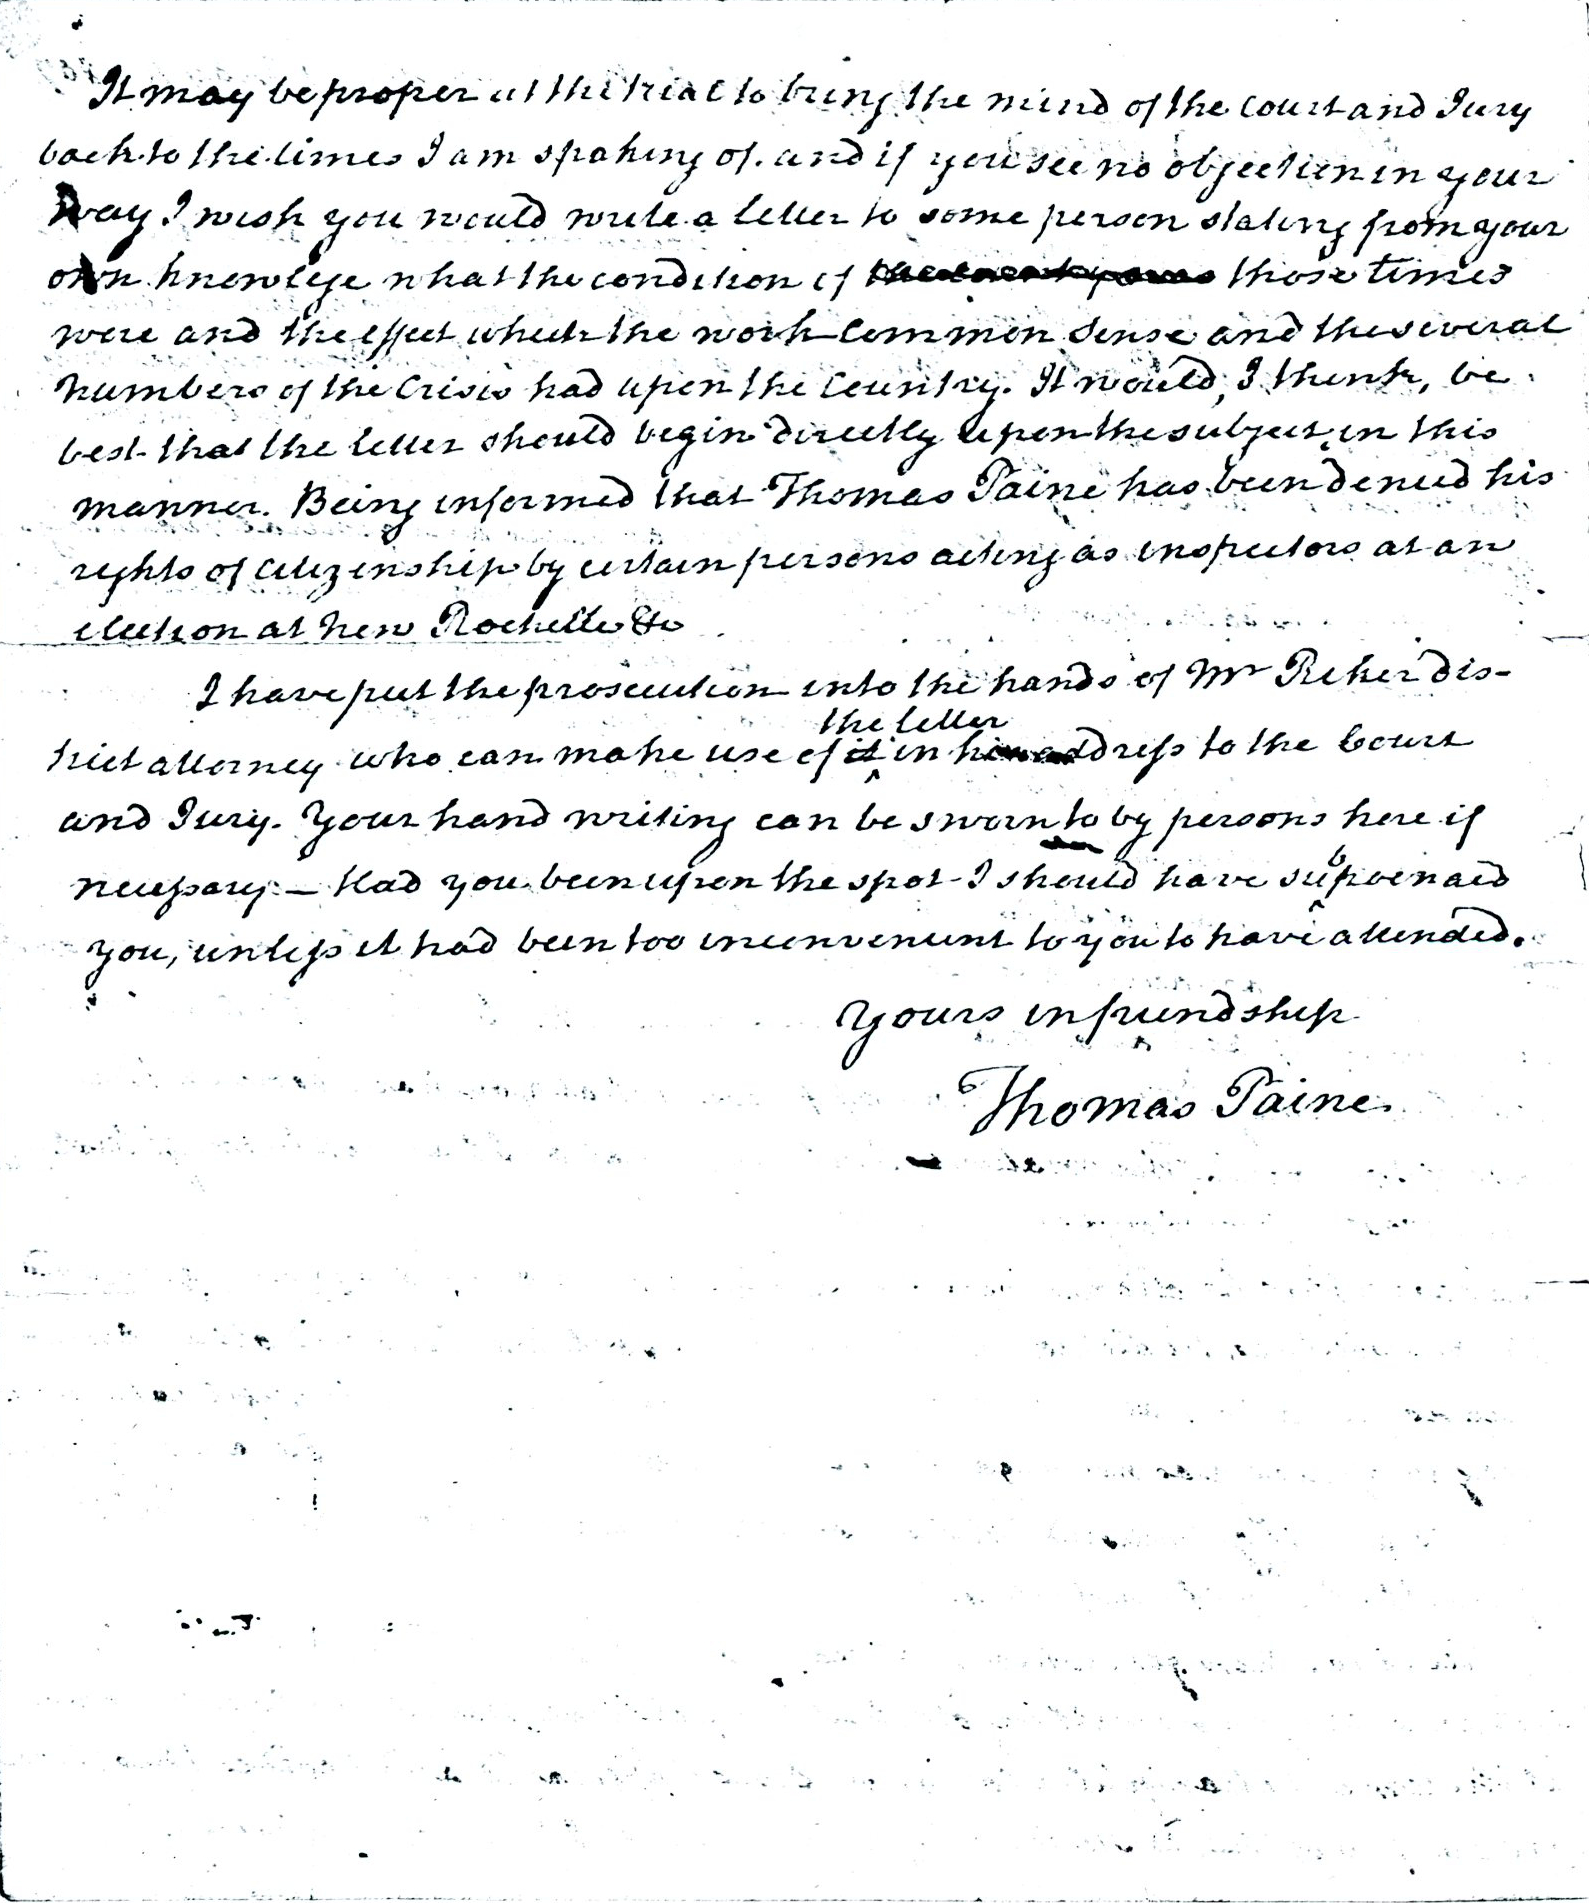 It may be proper at the trial to bring the mind of the court and Jury
back to the times I am spaking of. and if you see no objection in your
way I wish you would write a letter to some person stating from your
own knowlege what the condition of those times
were and the effect which the work Common Sense and the several
numbers of the Crisis had upon the Country. It would, I think, be
best that the letter should begin directly upon the subject in this
manner. Being informed that Thomas Paine has been denied his
rights of citizenship by certain persons acting as inspectors at an
election at New Rochelle &c
I have put the prosecution into the hands of Mr Riker dis-
the letter
trict attorney who can make use of it in his address to the Court
and Jury. Your hand writing can be sworn to by persons here if
necessary. — Had you been upon the spot I should have subpoenaed
you, unless it had been too inconvenient to you to have attended.
Yours in friendship
Thomas Paine